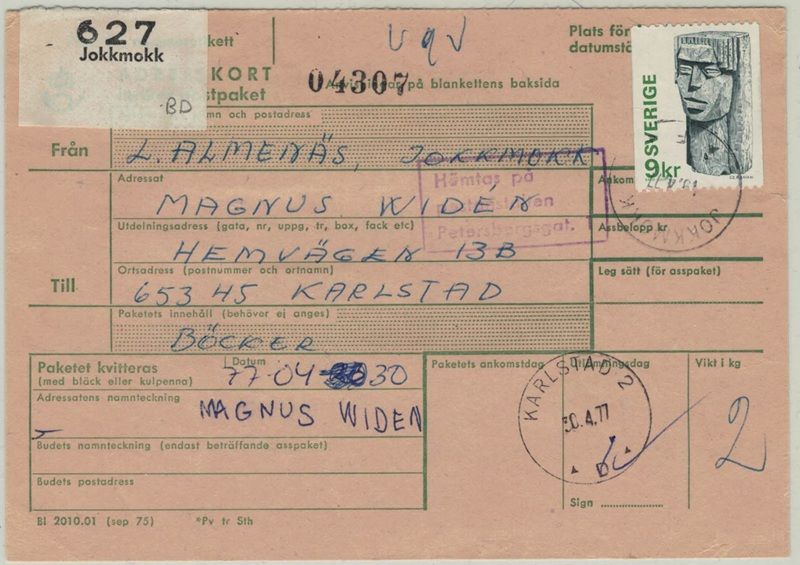 627
Jokkmokk
BD
KORT
paket
04307
på blankettens baksida
Plats för
SVERIGE
9kr
n och postadress
Från
L. ALMENÄS, JOKKMOKK
Hämtas på
Petersbergsgat.
Adressat
MAGNUS WIDÉN
Utdelningsadress (gata, nr, uppg, tr, box, fack etc)
HEMVÄGEN 13B
Assbelopp kr
JOKKMOKK
Ortsadress (postnummer och ortnamn)
Till
653 45 KARLSTAD
Leg sätt (för asspaket)
Paketets innehåll (behöver ej anges)
BÖCKER
Paketet kvitteras
(med bläck eller kulpenna)
Datum
77-04-30
Paketets ankomstdag
Utlämningsdag
Vikt i kg
Adressatens namnteckning
MAGNUS WIDEN
KARLSTAD 2
30.4.77
2
Budets namnteckning (endast beträffande asspaket)
Budets postadress
Sign
Bl 2010.01 (sep 75)
*Pv tr Sth